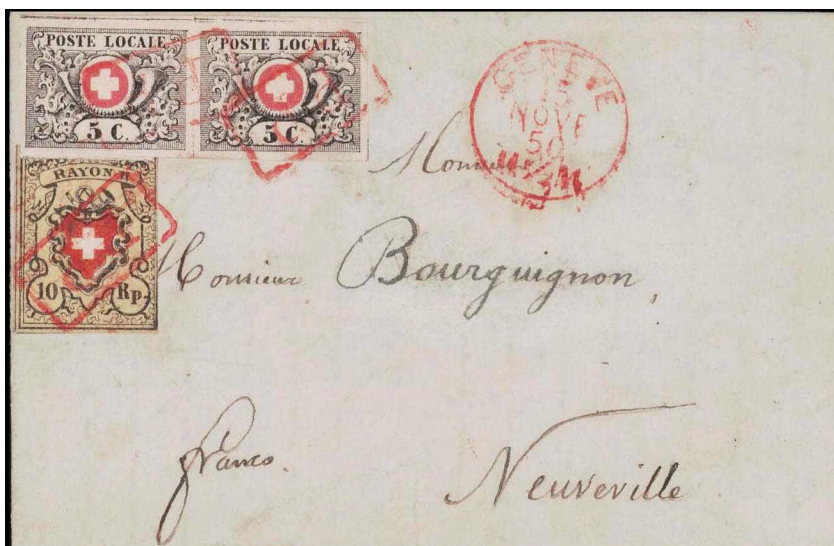 POSTE LOCALE
5 C.
POSTE LOCALE
5 C.
RAYON II
10 Rp.
GENEVE
NOVE
50
Monsieur
Monsieur Bourguignon,
franco.
Neuveville